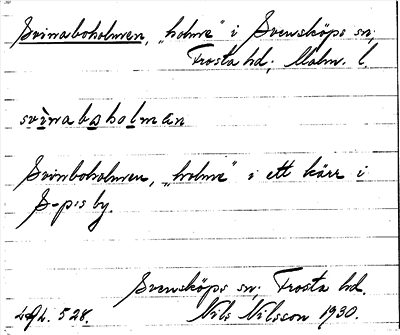 Svinaboholmen, "holme" i Svensköps sn,
Frosta hd, Malm. l.
svinaboholmən
Svinboholmen, "holme" i ett kärr i
S-p:s by.
Svensköps sn. Frosta hd.
Nils Nilsson 1930.
528.